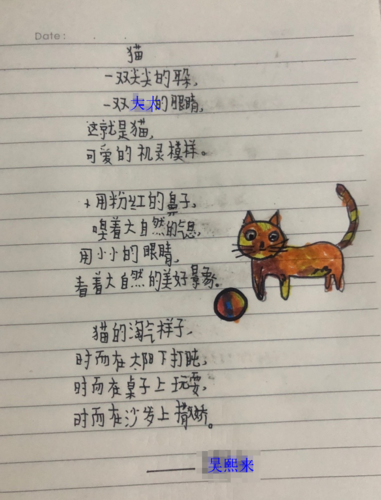 Date:
猫
一双尖尖的耳朵,
一双大大的眼睛,
这就是猫,
可爱的机灵模样。
用粉红的鼻子,
嗅着大自然的气息,
用小小的眼睛,
看着大自然的美好景象。
猫的淘气样子,
时而在太阳下打盹,
时而在桌子上玩耍,
时而在沙发上撒娇。
——吴熙来